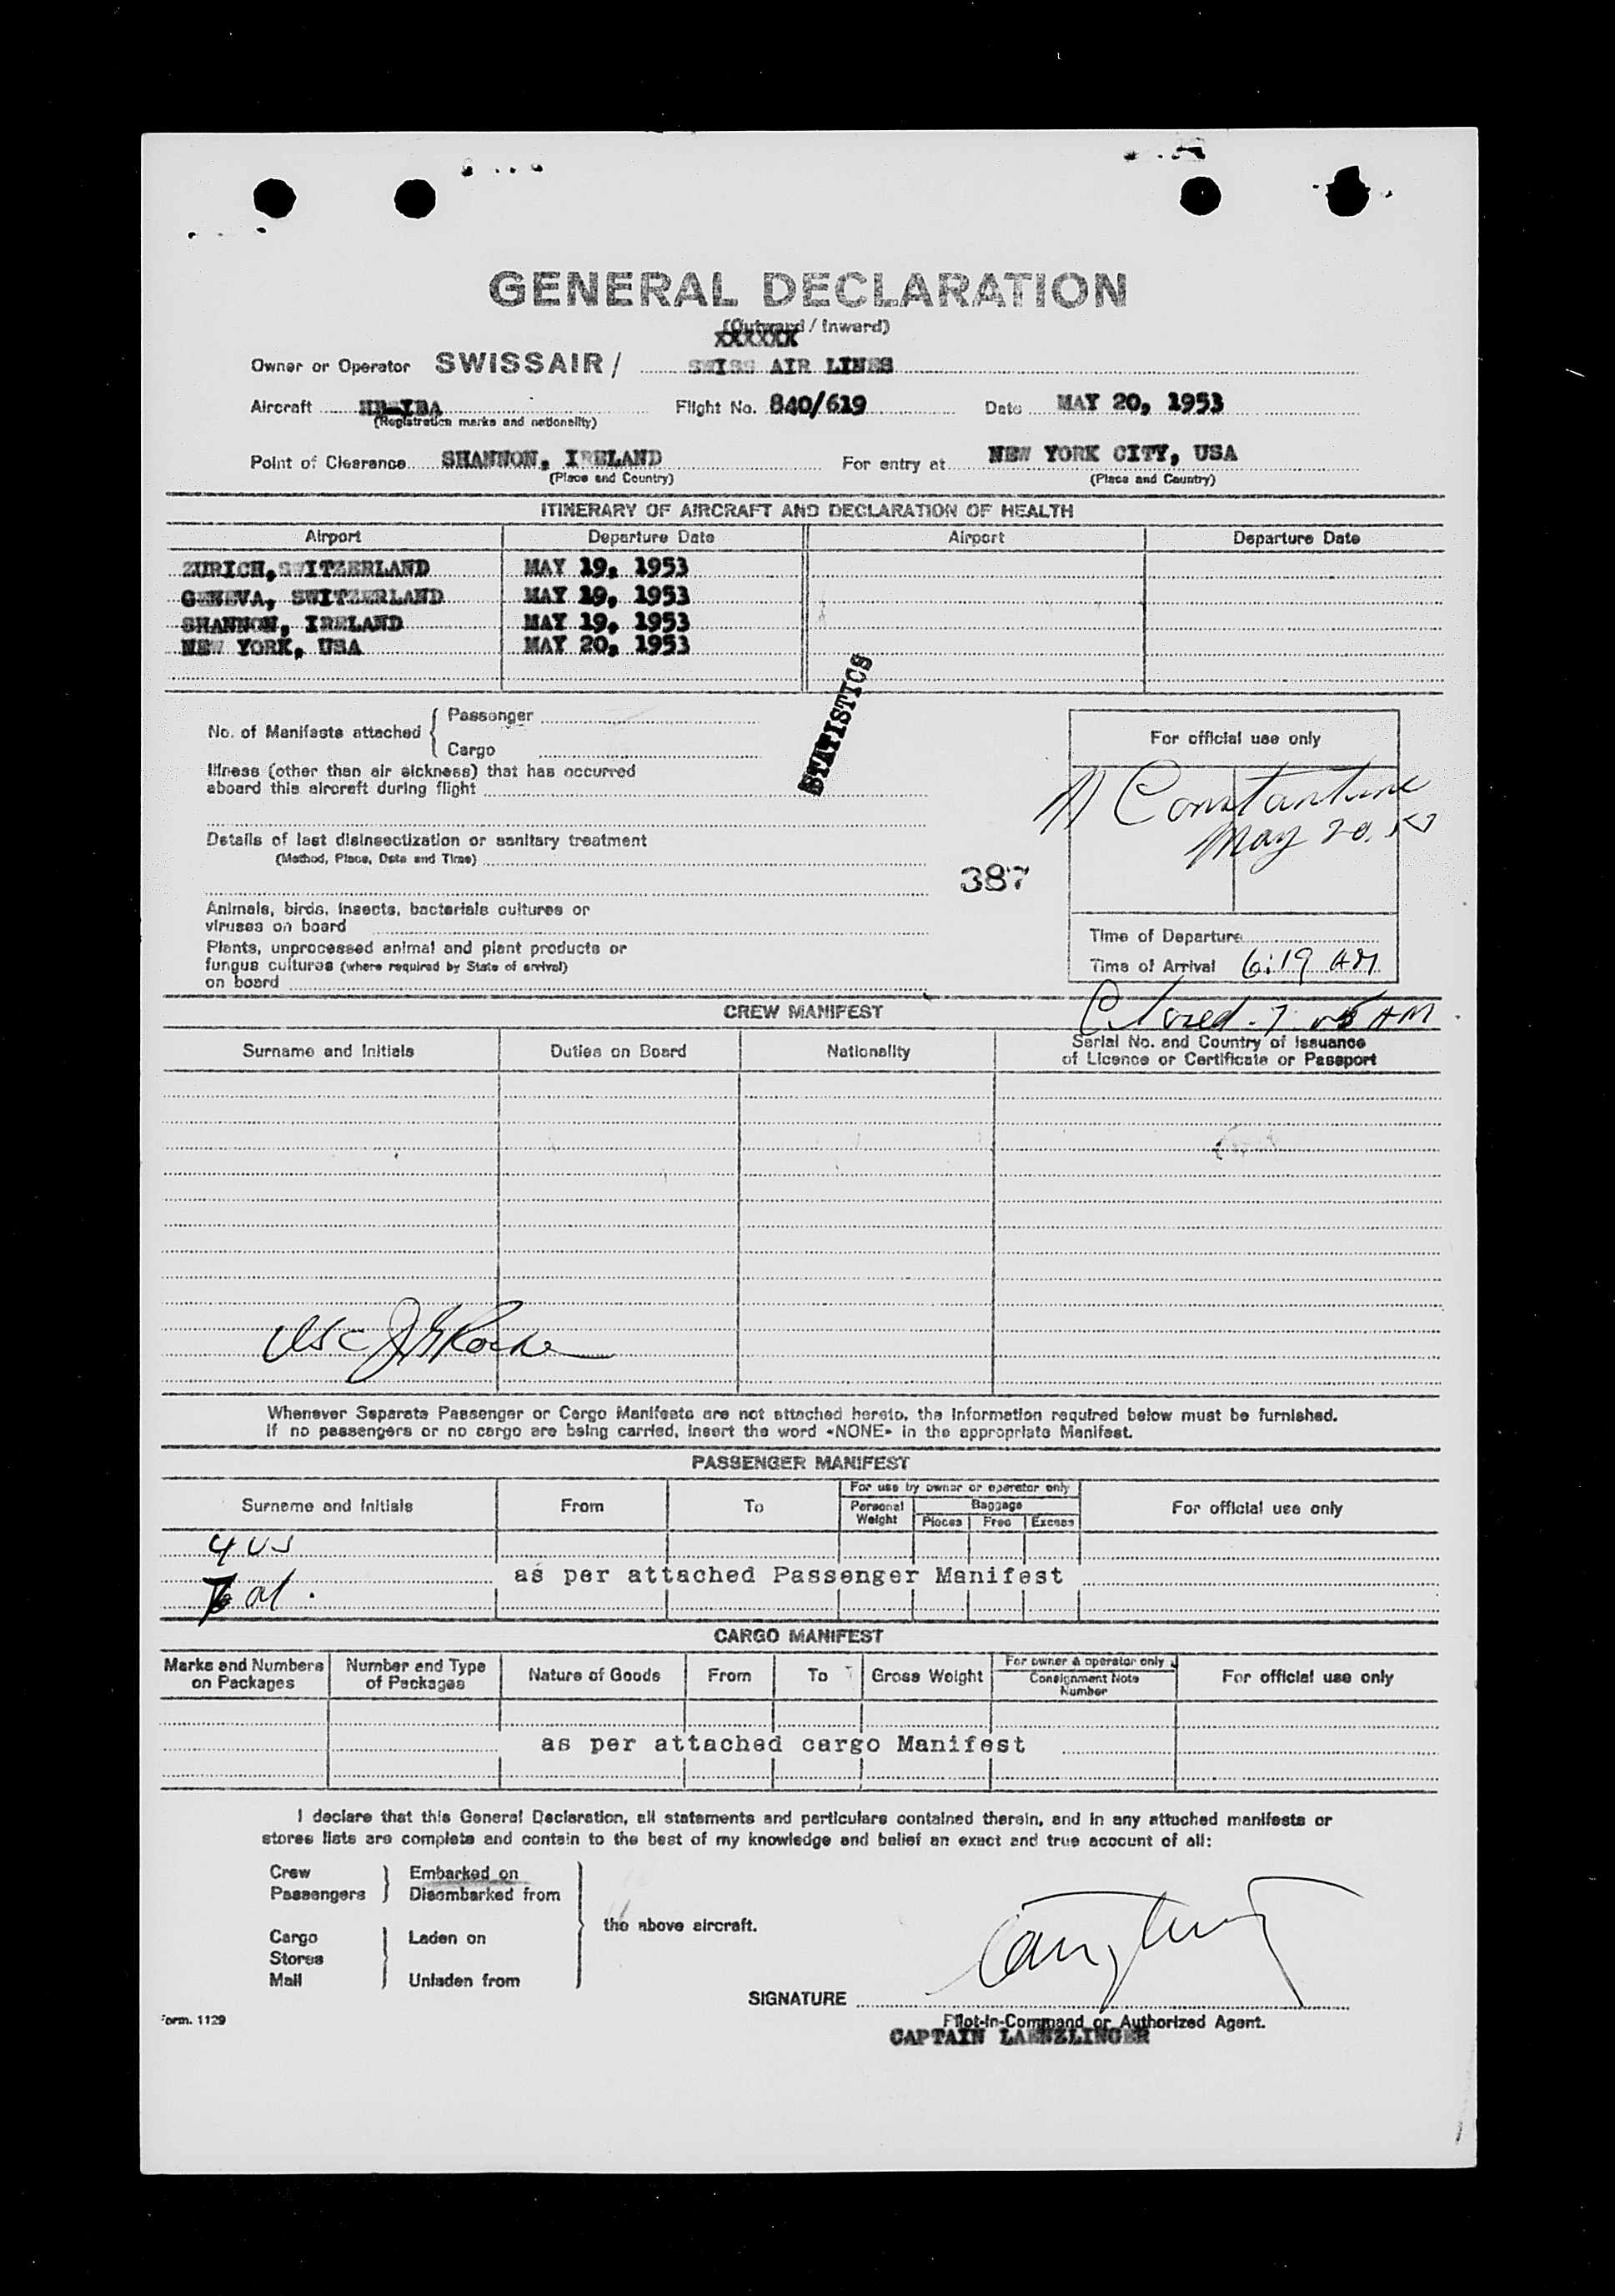 GENERAL DECLARATION
(Outward / Inward)
XXXXXX
Owner or Operator SWISSAIR / SWISS AIR LINES
Aircraft HB-IBA Flight No. 840/619 Date MAY 20, 1953
(Registration marks and nationality)
Point of Clearance SHANNON, IRELAND For entry at NEW YORK CITY, USA
(Place and Country) (Place and Country)
ITINERARY OF AIRCRAFT AND DECLARATION OF HEALTH
Airport Departure Date Airport Departure Date
ZURICH, SWITZERLAND MAY 19, 1953
GENEVA, SWITZERLAND MAY 19, 1953
SHANNON, IRELAND MAY 19, 1953
NEW YORK, USA MAY 20, 1953
STATISTICS
No. of Manifests attached { Passenger
Cargo
For official use only
Illness (other than air sickness) that has occurred
aboard this aircraft during flight
Constantine
May 20, 53
Details of last disinsectization or sanitary treatment
(Method, Place, Date and Time)
387
Animals, birds, insects, bacterials cultures or
viruses on board
Plants, unprocessed animal and plant products or
fungus cultures (where required by State of arrival)
on board
Time of Departure
Time of Arrival 6:19 AM
Closed - 7 05 AM
CREW MANIFEST
Surname and Initials Duties on Board Nationality Serial No. and Country of Issuance
of Licence or Certificate or Passport
Whenever Separate Passenger or Cargo Manifests are not attached hereto, the information required below must be furnished.
If no passengers or no cargo are being carried, insert the word «NONE» in the appropriate Manifest.
PASSENGER MANIFEST
Surname and Initials From To For use by owner or operator only For official use only
Personal Weight Baggage
Pieces Free Excess
4 US
as per attached Passenger Manifest
CARGO MANIFEST
Marks and Numbers on Packages Number and Type of Packages Nature of Goods From To Gross Weight For owner & operator only Consignment Note Number For official use only
as per attached cargo Manifest
I declare that this General Declaration, all statements and particulars contained therein, and in any attached manifests or
stores lists are complete and contain to the best of my knowledge and belief an exact and true account of all:
Crew } Embarked on
Passengers } Disembarked from
the above aircraft.
Cargo } Laden on
Stores
Mail } Unladen from
SIGNATURE
Form. 1129
Pilot-in-Command or Authorized Agent.
CAPTAIN LAENZLINGER